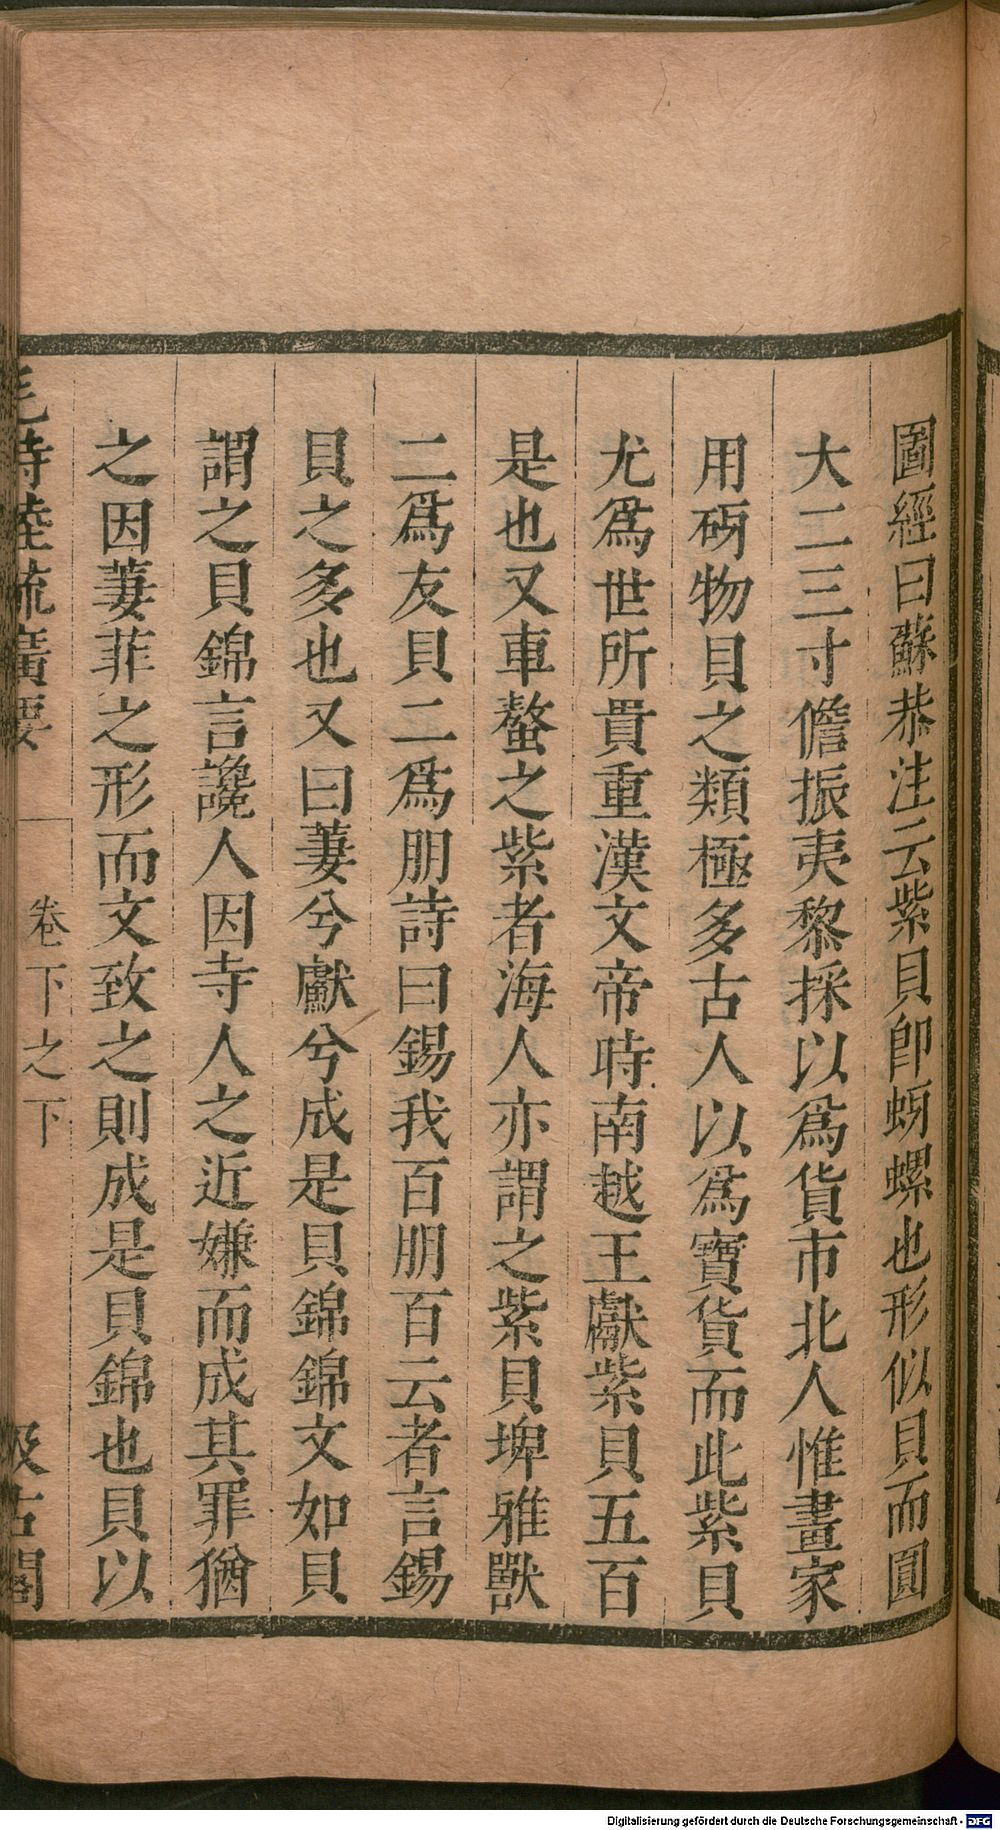 圖經曰蘇恭注云紫貝卽蚜螺也形似貝而圓
大二三寸儋振夷黎採以爲貨市北人惟畫家
用砑物貝之類極多古人以爲寶貨而此紫貝
尤爲世所貴重漢文帝時南越王獻紫貝五百
是也又車螯之紫者海人亦謂之紫貝埤雅獸
二爲友貝二爲朋詩曰錫我百朋百云者言錫
貝之多也又曰萋兮獻兮成是貝錦錦文如貝
謂之貝錦言讒人因寺人之近嫌而成其罪猶
之因萋菲之形而文致之則成是貝錦也貝以
毛詩陸疏廣要 卷下之下 汲古閣
Digitalisierung gefördert durch die Deutsche Forschungsgemeinschaft - DFG